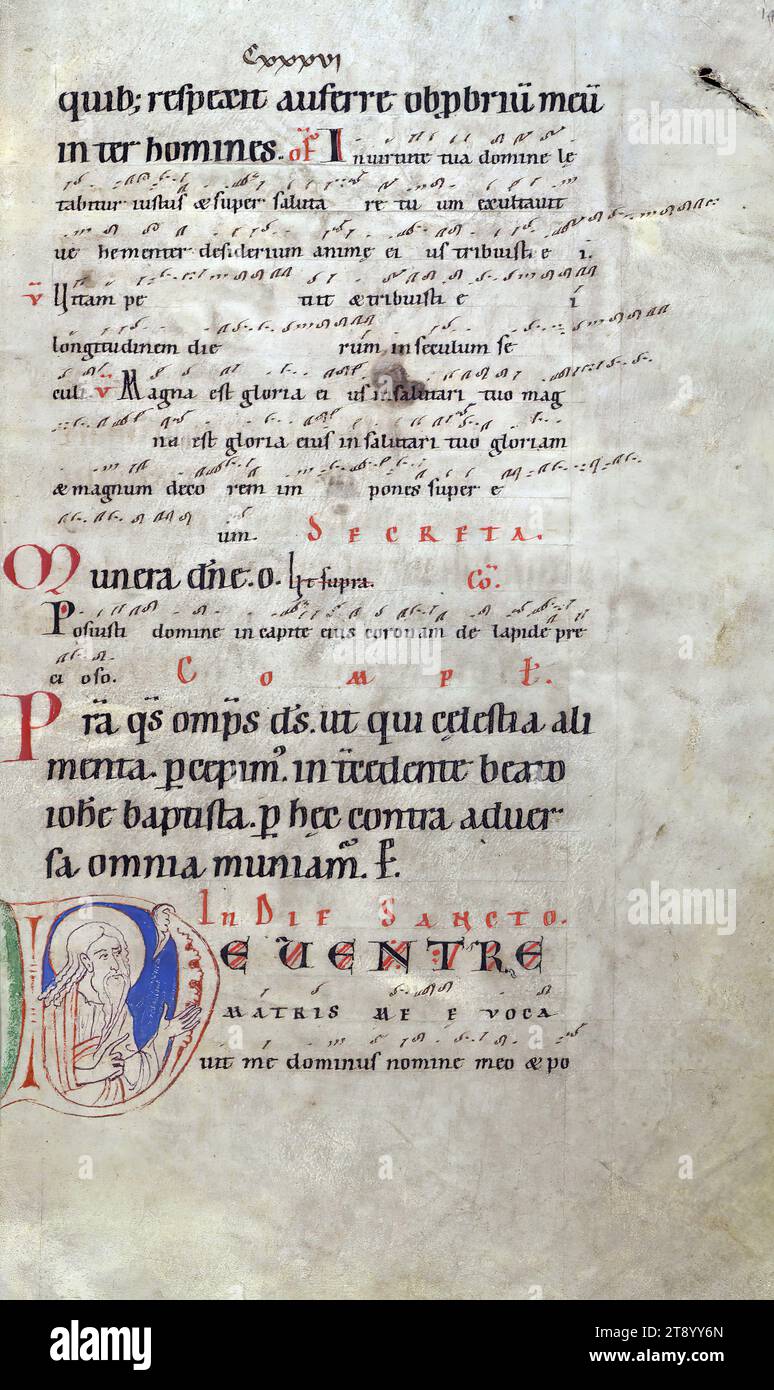 Cxxxvi
quib; respexit auferre obp̱briū meū
inter homines. of̄ In uirtute tua domine lę
tabitur iustus & super saluta re tu um exultauit
ue hementer desiderium animę ei us tribuisti e i.
v̄ Uitam pe tiit & tribuisti e i
longitudinem die rum in seculum se
culi v̄ Magna est gloria ei us in salutari tuo mag
na est gloria eius in salutari tuo gloriam
& magnum deco rem im pones super e
um. SECRETA.
Munera dn̄e. o. Ut supra. Cō.
Posuisti domine in capite eius coronam de lapide pre
ci oso. COMPŁ.
Prā qs̄ omp̄s ds̄. ut qui cęlestia ali
menta. p̱cepim᾽. int̄cedente beato
ioh̄e baptista. p̱ hęc contra aduer
sa omnia muniam᾽. P̱.
IN DIE SANCTO.
DE UENTRE
MATRIS ME E VOCA
uit me dominus nomine meo & po
alamy
a
a
a
alamy
a
alamy
a
alamy
Image ID: 2T8YY6N
www.alamy.com